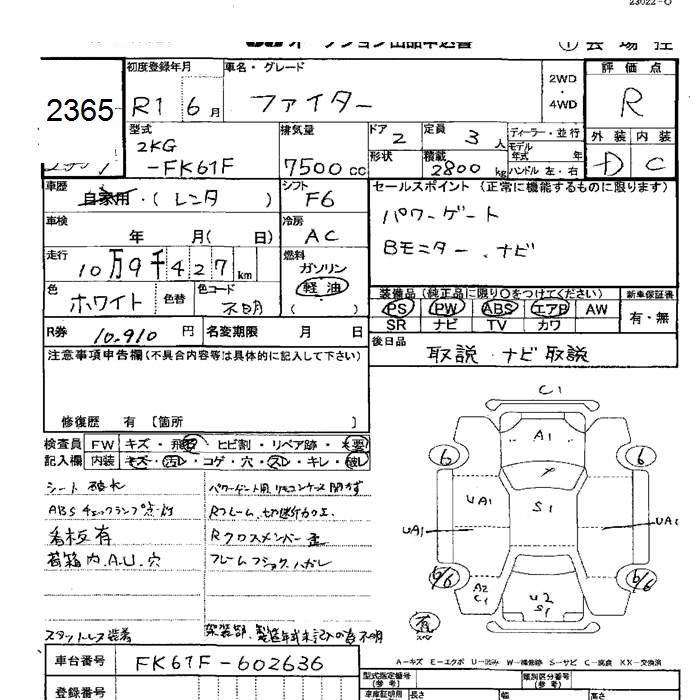 23022-0
オークション出品申込書
① 会場控
2365
初度登録年月
R1 6月
車名・グレード
ファイター
2WD
・
4WD
評価点
R
型式
2KG
-FK61F
排気量
7500 cc
ドア
2
形状
定員
3 人
積載
2800 kg
ディーラー・並行
モデル
年式 年
ハンドル 左・右
外装 内装
D C
車歴
自家用・( レンタ )
シフト
F6
セールスポイント (正常に機能するものに限ります)
パワーゲート
Bモニター、ナビ
車検
年 月( 日)
冷房
AC
走行
10万9千427km
燃料
ガソリン
軽油
( )
色
ホワイト
色替
色コード
不明
装備品(純正品に限り○をつけてください)
新車保証書
PS PW ABS エアB AW
有・無
SR ナビ TV カワ
R券
10,910 円
名変期限 月 日
後日品
取説・ナビ取説
注意事項申告欄(不具合内容等は具体的に記入して下さい)
修復歴 有 [箇所 ]
検査員
記入欄
FW キズ・飛石・ヒビ割・リペア跡・要
内装 キズ・汚レ・コゲ・穴・スレ・キレ・破レ
シート破れ
ABSチェックランプ点灯
看板有
荷箱内.A.U.穴
スタットレス装着
パワーゲート用リモコンケース閉らず
Rフレーム、切断加工
Rクロスメンバー歪
C1
A1
6 6
UA1
S1
UA1
UA1
6/6 6/6
A2
C1
U2
S1
A―キズ E―エクボ U―凹み W―補修跡 S―サビ C―腐食 XX―交換済
車台番号
FK61F-602636
登録番号
型式指定番号
(参考)
類別区分番号
(参考)
車庫証明用
長さ
幅
高さ